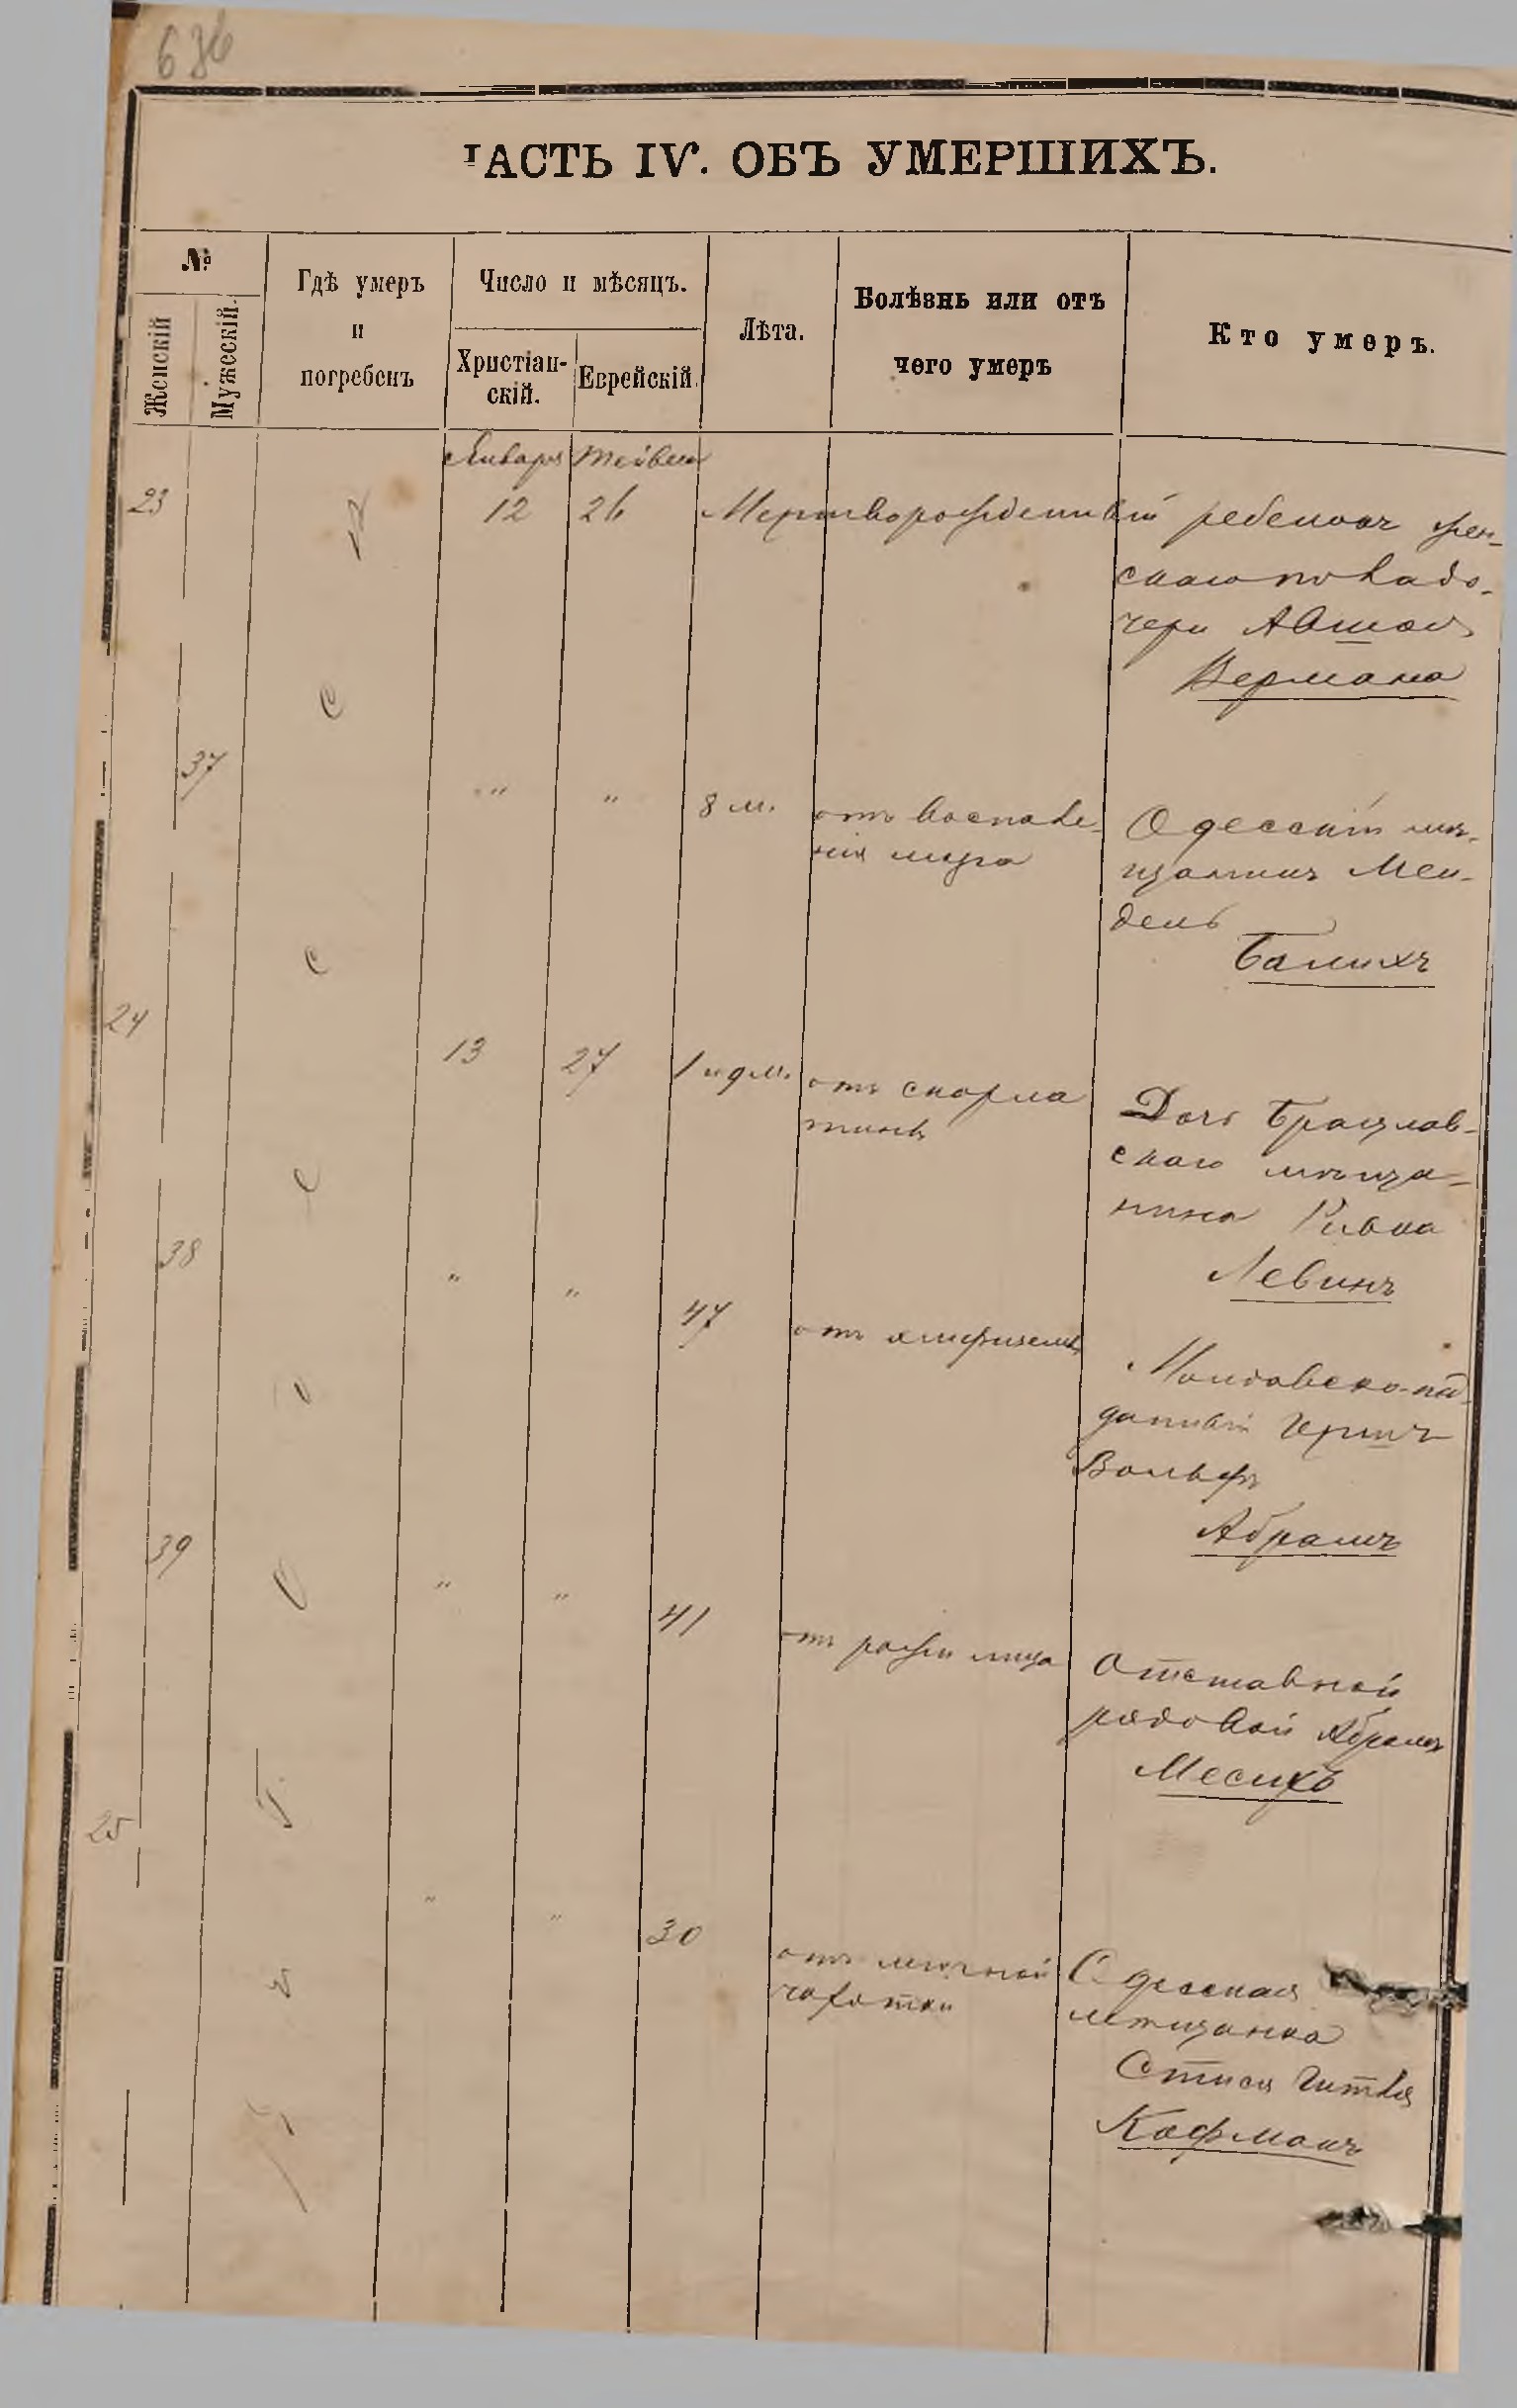 636
ЧАСТЬ IV. ОБЪ УМЕРШИХЪ.
№
Женскій
Мужескій.
Гдѣ умеръ
и
погребенъ
Число и мѣсяцъ.
Христіан-
скій.
Еврейскій.
Лѣта.
Болѣзнь или отъ
чего умеръ
Кто умеръ.
Января Тейвеса
23 12 26 Мертворожденный ребенокъ жен-
скаго пола до-
чери
Вермана
37 " " 8 м. отъ воспале-
нія Одесскій мѣ-
щанинъ Мен-
дель
Балихъ
24 13 27 1 и 9 м. отъ скарла
тины
Дочь Брацлав-
скаго мѣща-
нина Ривка
Левинъ
38 " " 47 отъ эмфиземы
Молдавско-по
данный Гершъ
Вольфъ
Абрамъ
39 " " 41 отъ рожи лица Отставной
рядовой Абрамъ
Месихъ
25 " " 30 отъ легочной
чахотки
Одесская
мѣщанка
Стися Гитля
Кофманъ